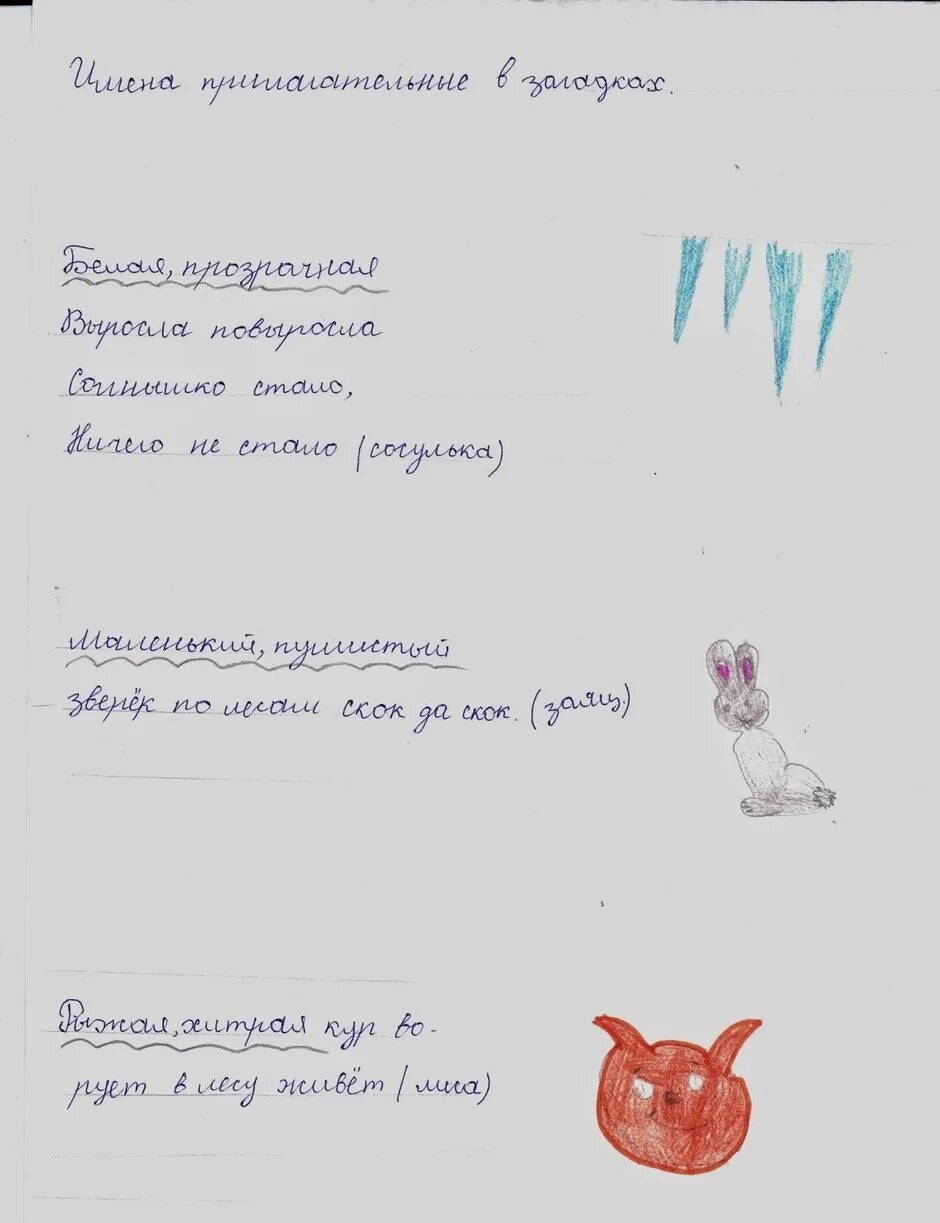 Имена прилагательные в загадках.
Белая, прозрачная
Выросла повыросла
Солнышко стало,
Ничего не стало (сосулька)
Маленький, пушистый
зверёк по лесам скок да скок. (заяц.)
Рыжая, хитрая кур во-
рует в лесу живёт (лиса)